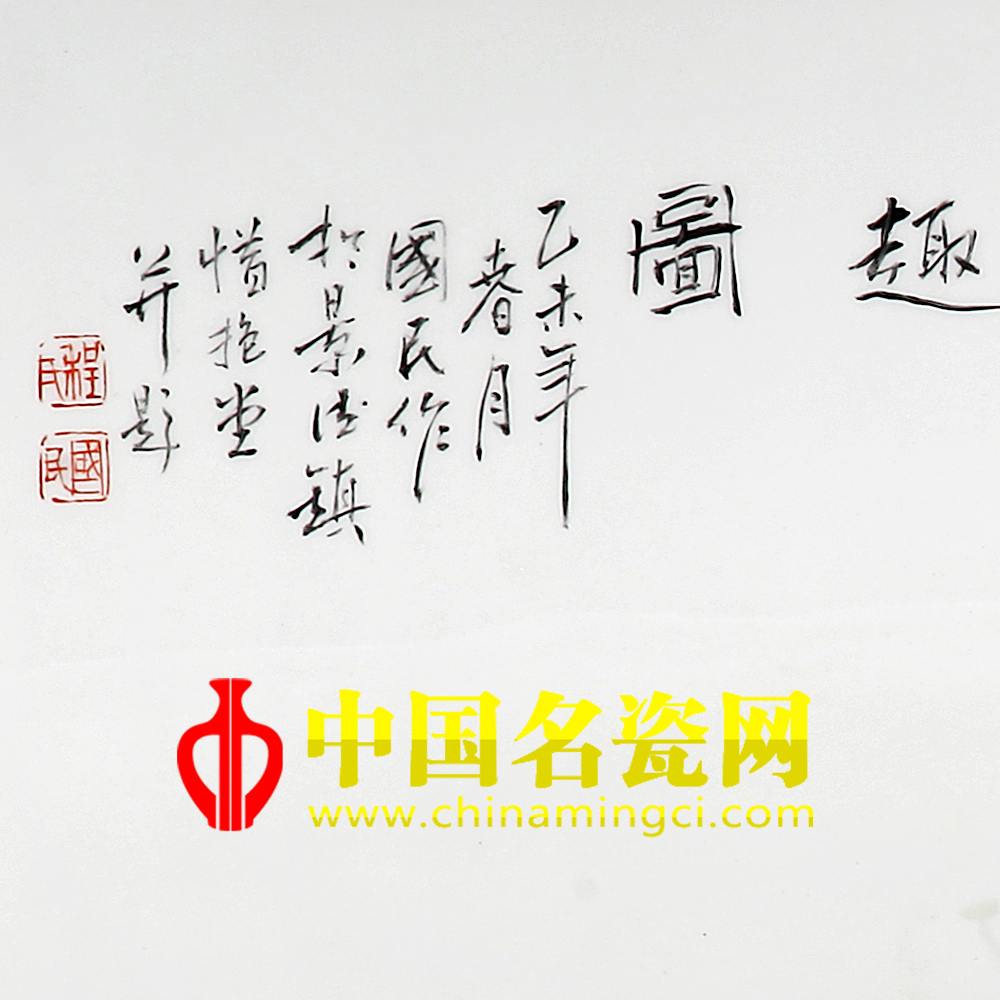 趣圖
乙未年
春月
國民作
於景德鎮
惜抱堂
并題
程氏
國民
中国名瓷网
www.chinamingci.com